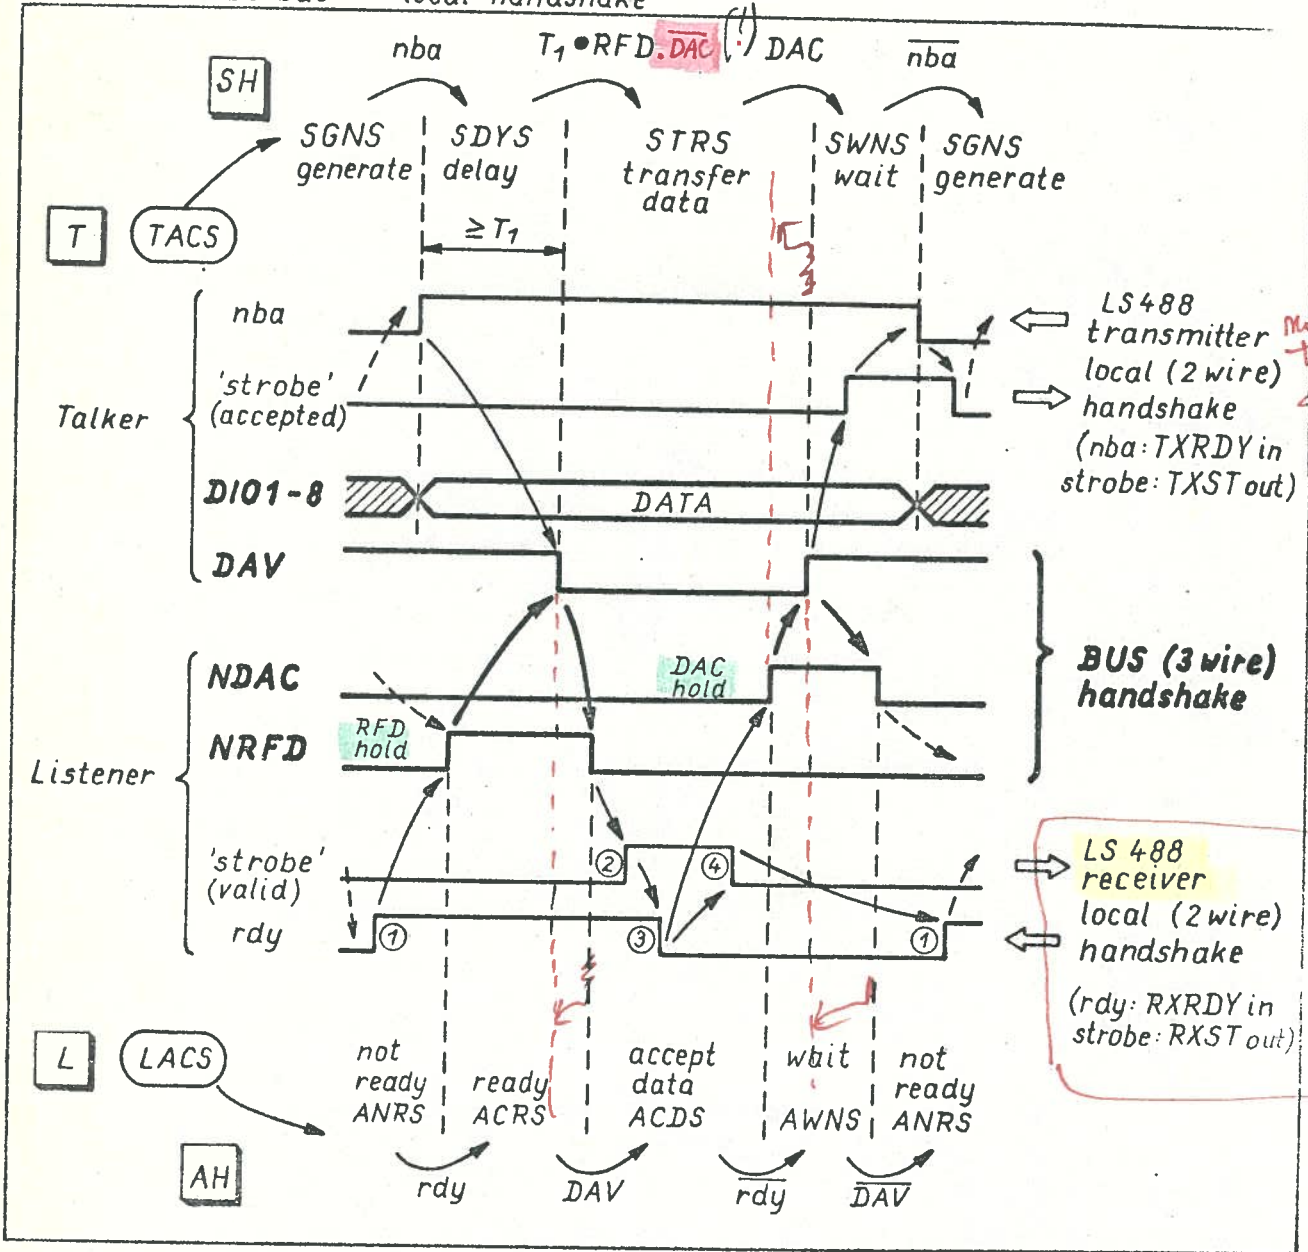 local handshake
nba T₁•RFD.D̅A̅C̅ (!) DAC n̅b̅a̅
SH
SGNS generate
SDYS delay
STRS transfer data
SWNS wait
SGNS generate
T
TACS
≥T₁
nba
'strobe' (accepted)
Talker
DIO1-8
DATA
DAV
LS488
transmitter
local (2 wire)
handshake
(nba: TXRDY in
strobe: TXST out)
NDAC
DAC hold
NRFD
RFD hold
BUS (3 wire)
handshake
Listener
'strobe' (valid)
② ④
rdy
① ③ ①
LS 488
receiver
local (2 wire)
handshake
(rdy: RXRDY in
strobe: RXST out)
L
LACS
not ready ANRS
ready ACRS
accept data ACDS
wait AWNS
not ready ANRS
AH
rdy DAV r̅d̅y̅ D̅A̅V̅